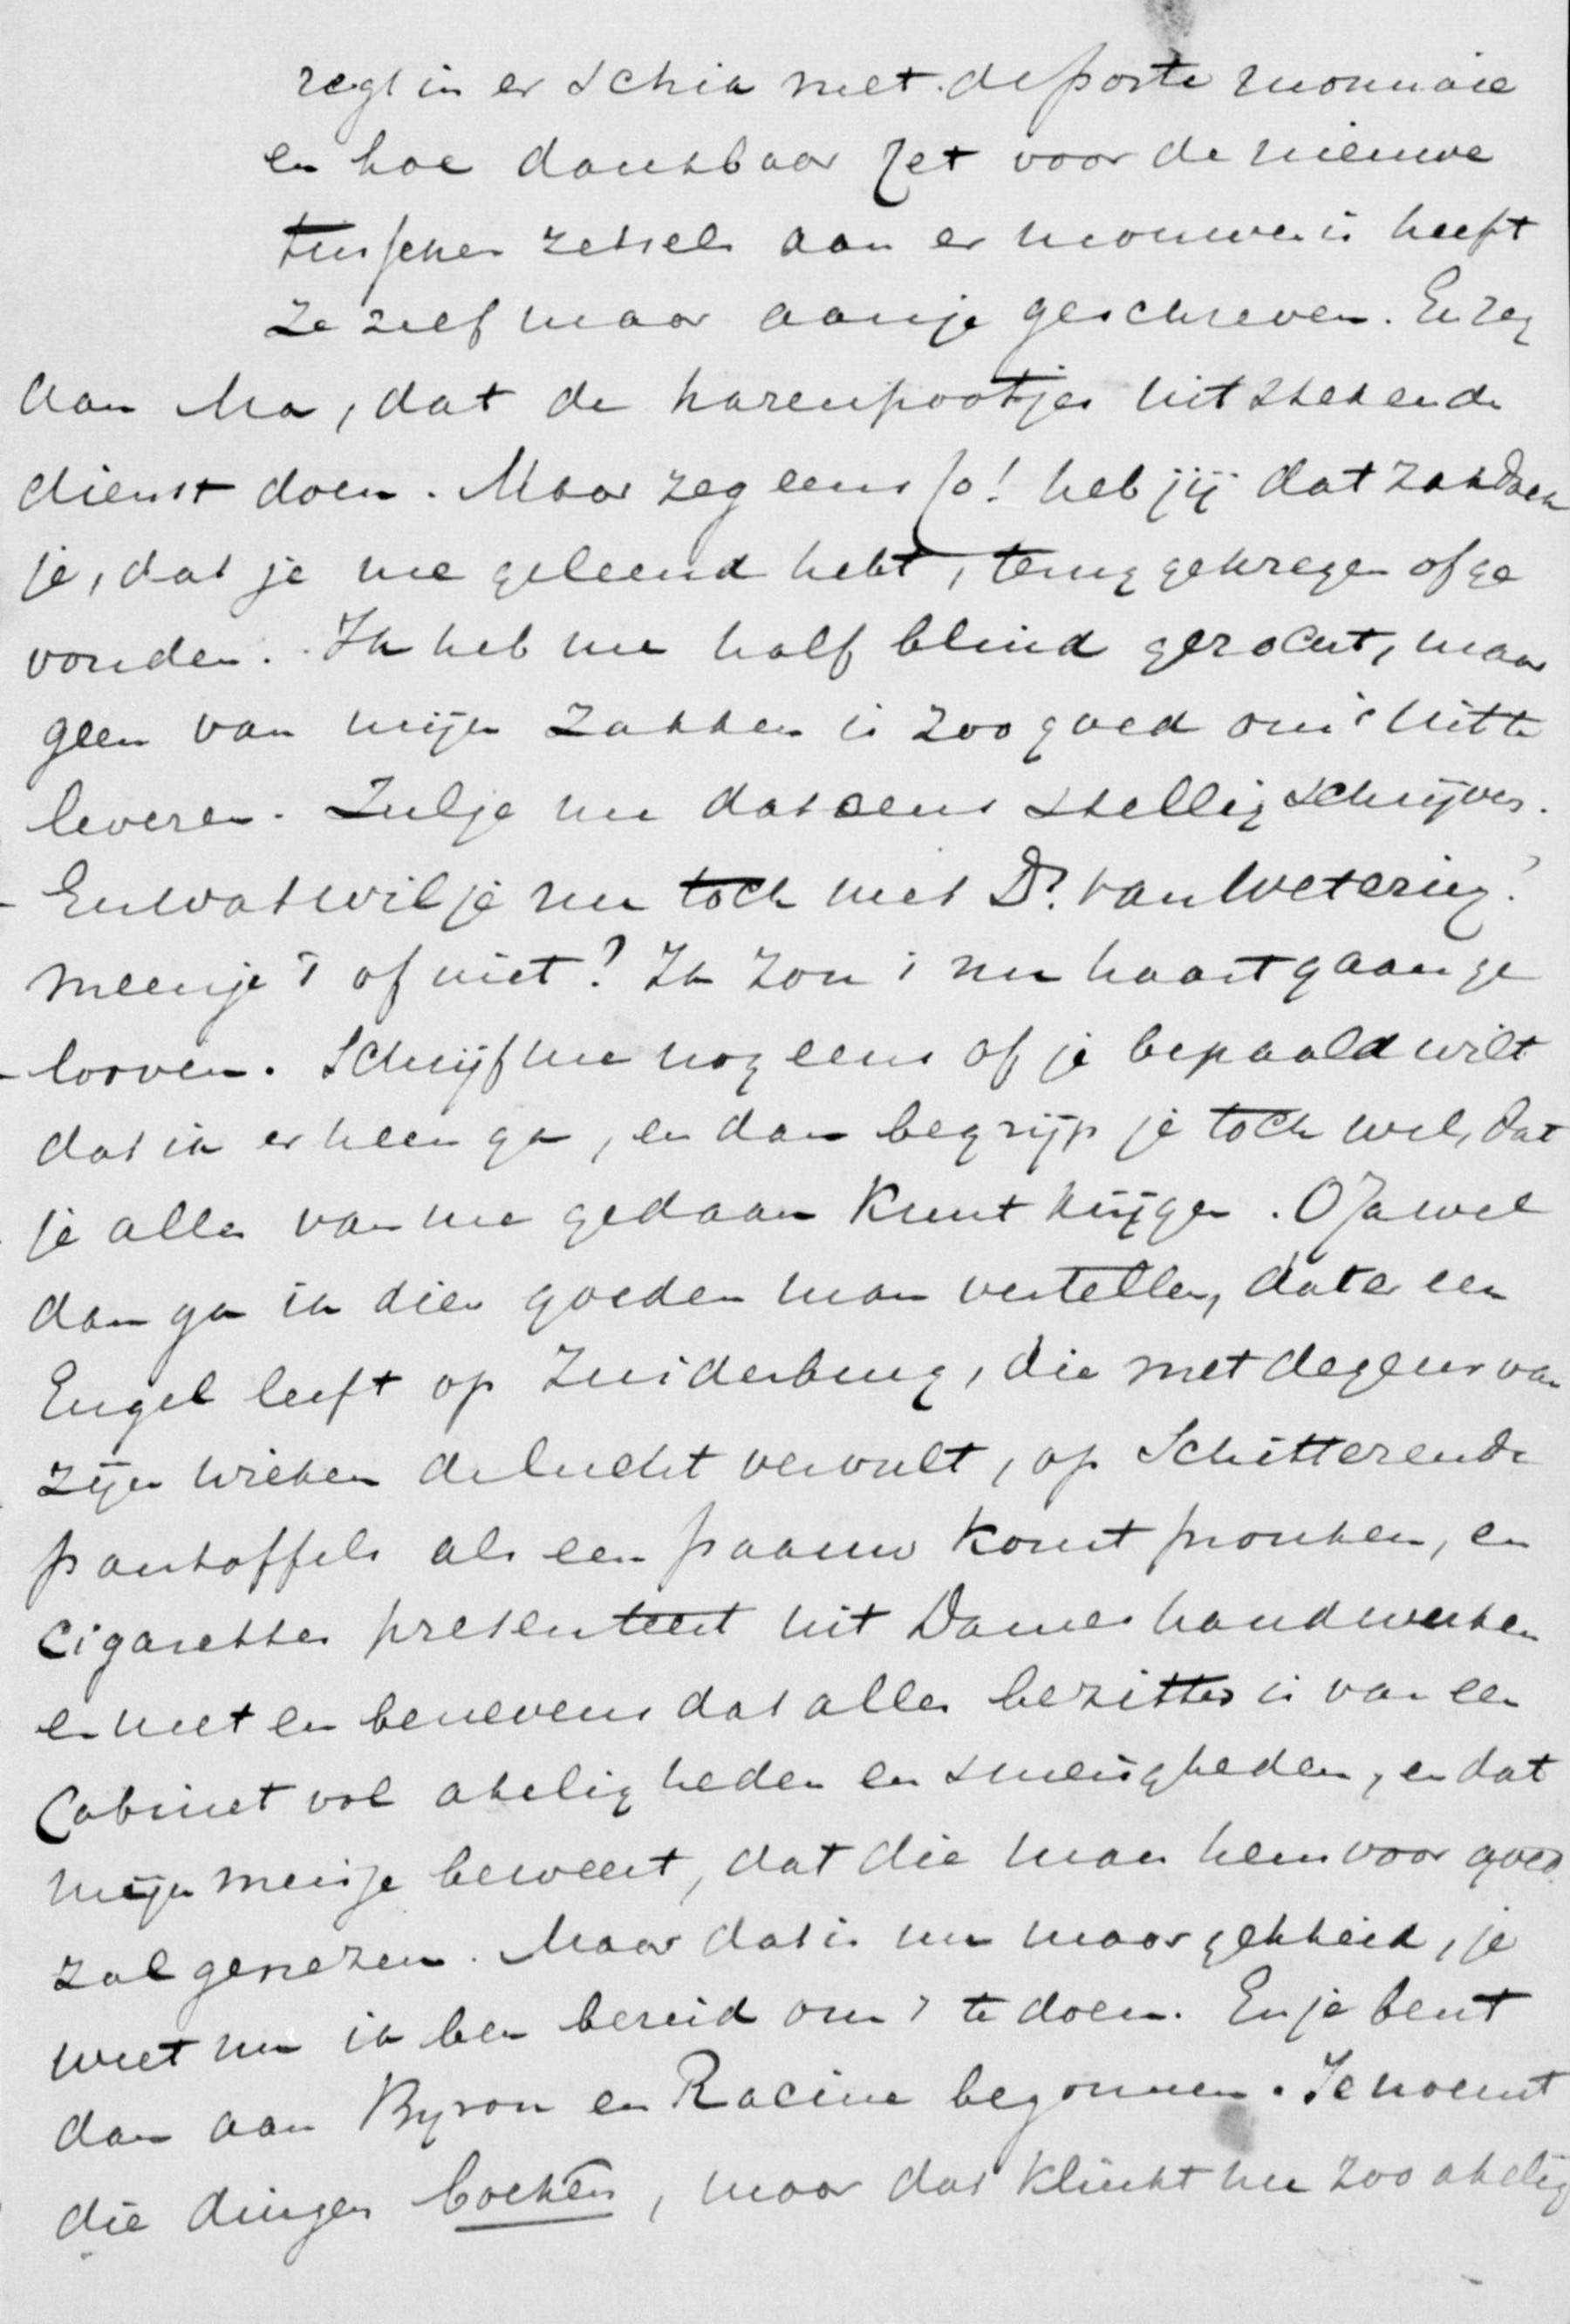 regt in er schik met de porte monnaie
en hoe dankbaar Jet voor de nieuwe
tusschen zetsels aan er mouwen is heeft
ze zelf maar aan je geschreven. En zeg
aan Ma, dat de hazenpootjes uitstekende
dienst doen. Maar zeg eens Jo! heb jij dat zakdoek
je, dat je me geleend hebt, terug gekregen of ge
vonden. Ik heb me half blind gezocht, maar
geen van mijn zakken is zoo goed om 't uit te
leveren. Zul je me dat eens stellig schrijven.
En wat wil je nu toch met Dr. van Wetering?
meen je 't of niet? Ik zou 't nu haast gaan ge
looven. Schrijf me nog eens of je bepaald wilt
dat ik er heen ga, en dan begrijp je toch wel, dat
je alles van me gedaan kunt krijgen. O Jawel
dan ga ik dien goeden man vertellen, dat er een
Engel leeft op Zuiderburg, die met de geur van
zijn wieken de lucht vervult, op schitterende
pantoffels als een paauw komt pronken, en
cigaretten presenteert uit Dames handwerken
en met en benevens dat alles bezitter is van een
Cabinet vol akeligheden en smeerigheden, en dat
mijn meisje beweert, dat die man hem voor goed
zal genezen. Maar dat is nu maar gekheid, je
weet nu ik ben bereid om 't te doen. En je bent
dan aan Byron en Racine begonnen. Je noemt
die dingen boeken, maar dat klinkt me zoo akelig